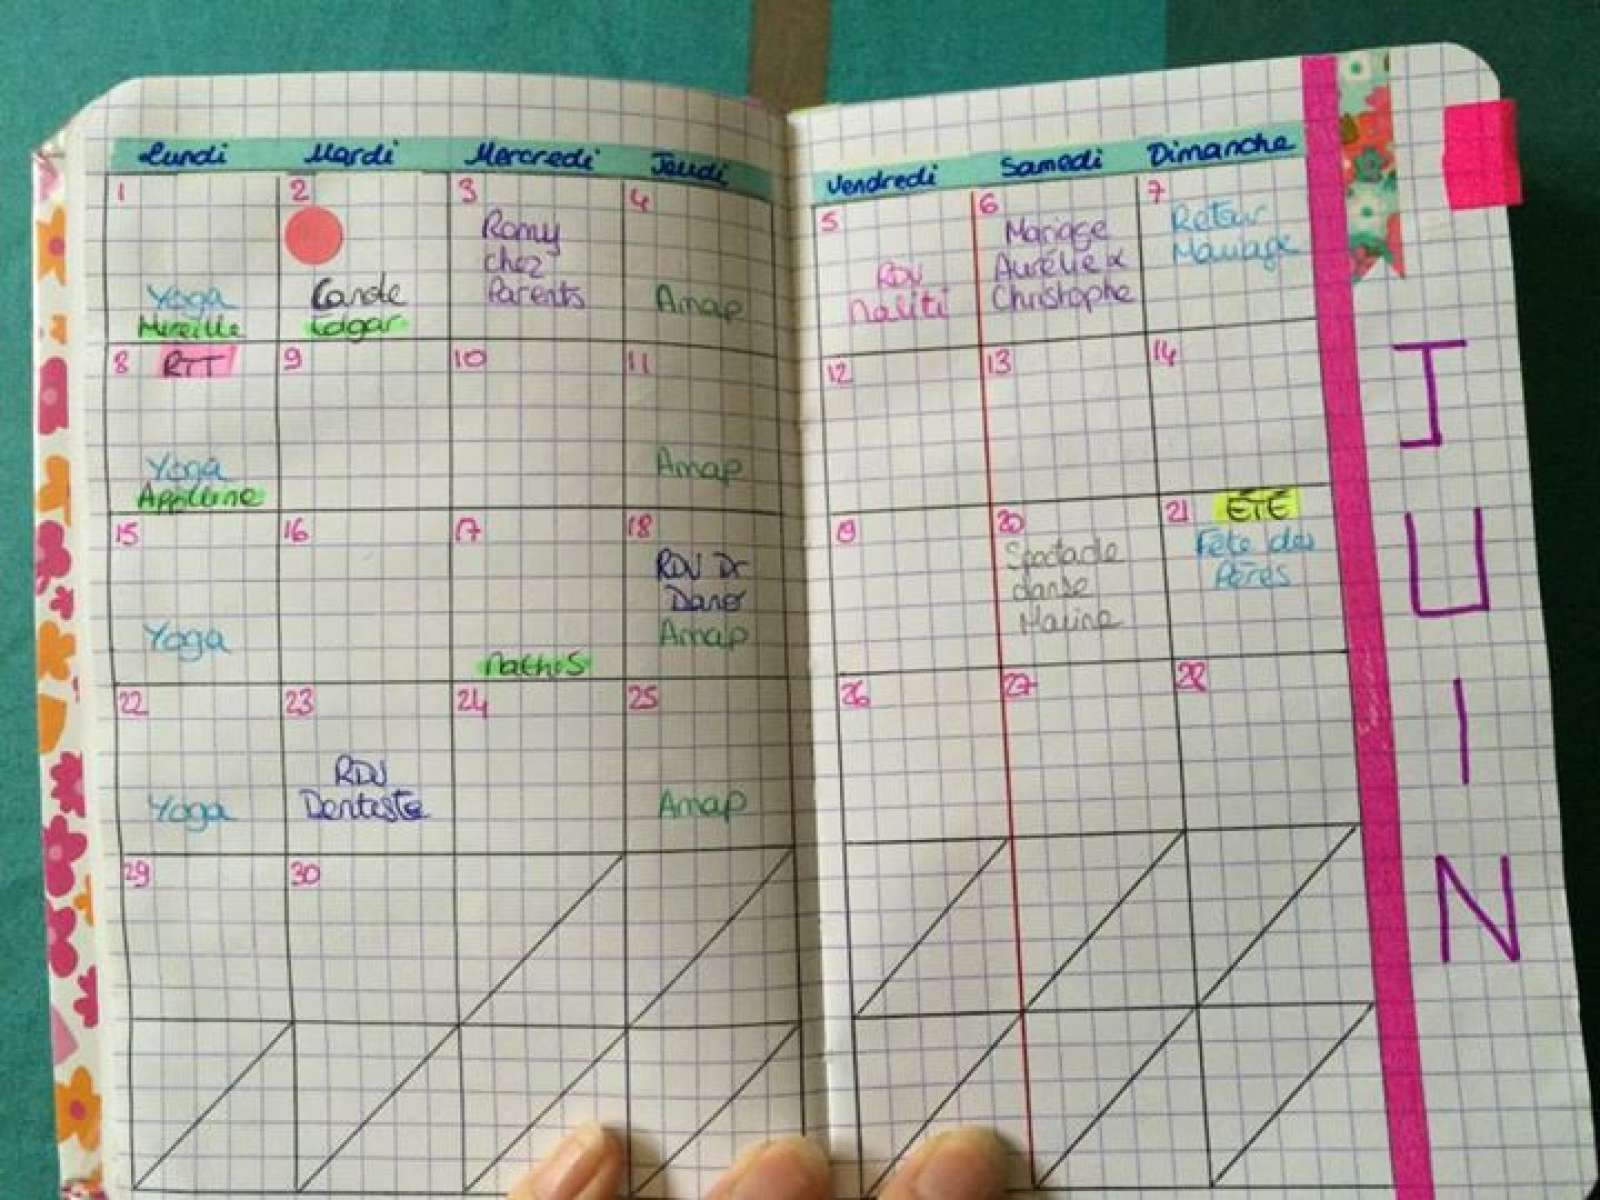 Lundi Mardi Mercredi Jeudi Vendredi Samedi Dimanche
1
Yoga
Mireille
2
Carole
Edgar
3
Romy
chez
Parents
4
Amap
5
RDV
6
Mariage
Aurélie &
Christophe
7
Retour
Mariage
8 RTT
Yoga
Appoline
9
10
11
Amap
12
13
14
15
Yoga
16
17
Mathis
18
RDV Dr
Amap
19
20
Spectacle
danse
Marine
21 ÉTÉ
Fête des
Pères
22
Yoga
23
RDV
Dentiste
24
25
Amap
26
27
28
29
30
JUIN